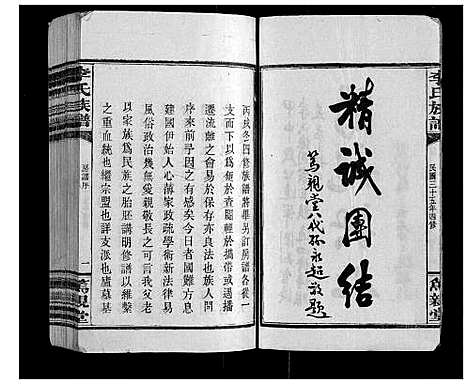 李氏族譜
民國三十五年四修
篤親堂
精誠團結
篤親堂八代孫永超敬題
丙戌冬四修族譜將畢另訂房譜各從一
支而下以爲便於查閱輕於攜帶或遇播
遷流離之會易於保存亦良法也族人問
序於余余有感矣今日者國難方息
建國伊始人心薄家政疏學術新法律易
風俗政治幾無愛親敬長之可言我父老
以家族爲民族之胎胚講明修譜以維繫
之重血統也繼宗盟也詳支派也廬墓基
李氏族譜
房譜序
一
篤親堂